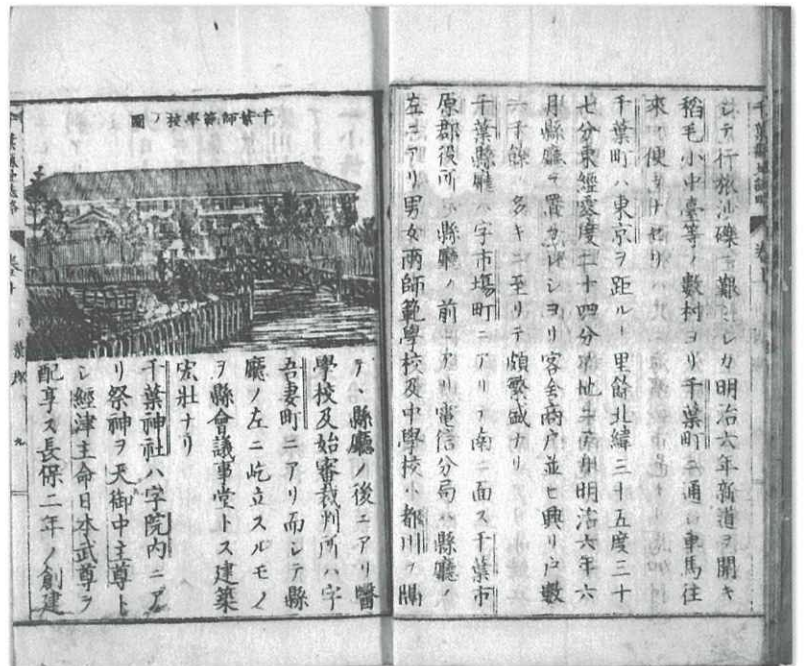 シテ行旅ニ艱シカ明治六年新道ヲ開キ
稻毛小中臺等ノ數村ヨリ千葉町ニ通シ車馬往
來ニ便
千葉町ハ東京ヲ距ル十里餘北緯三十五度三十
七分東經零度二十四分ノ地ニ在リ明治六年六
月縣廳ヲ置カレシヨリ客舍商戸並ヒ興リ戸數
六千餘ノ多キニ至リテ頗繁盛ナリ
千葉縣廳ハ字市場町ニアリテ南ニ面ス千葉市
原郡役所ハ縣廳ノ前ニアリ電信分局ハ縣廳ノ
左ニアリ男女兩師範學校及中學校ハ都川ヲ隔
千葉師範學校ノ圖
テヽ縣廳ノ後ニアリ醫
學校及始審裁判所ハ字
吾妻町ニアリ而シテ縣
廳ノ左ニ屹立スルモノ
ヲ縣會議事堂トス建築
宏壯ナリ
千葉神社ハ字院内ニア
リ祭神ヲ天御中主尊ト
シ經津主命日本武尊ヲ
配享ス長保二年ノ創建
九